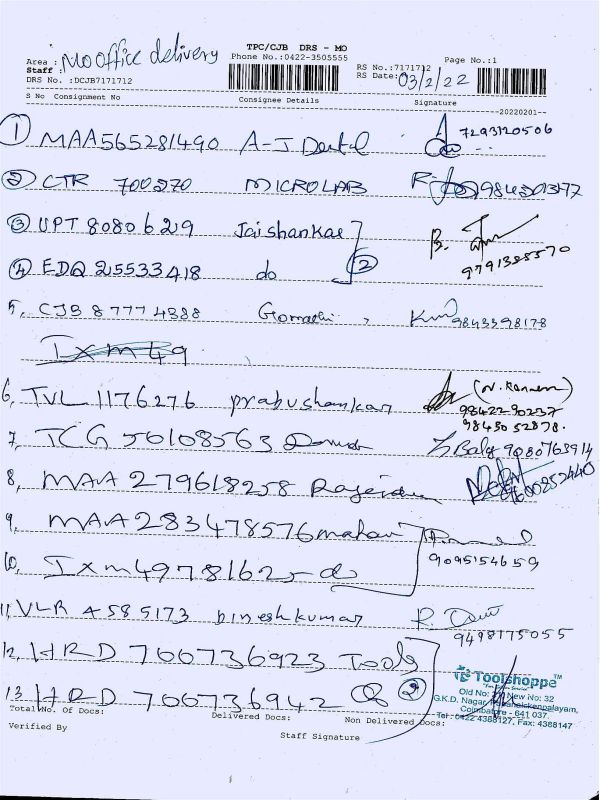 TPC/CJB DRS - MO
Area : MO office delivery Phone No.:0422-3505555 RS No.:7171712 Page No.:1
Staff : RS Date: 03/2/22
DRS No. :DCJB7171712
S No Consignment No Consignee Details Signature
20220201
1 MAA565281490 A-J Dental 7293120506
2 CTR 700270 MICROLAB
3 UPT 8080629 Jaishankar B.
4 EDQ 25533418 do 2 9791385570
5, CJB 87774388 Gomathi, 9843398178
Ixm49
6, TVL 1176276 prabushankar (N. Kannan)
9842290237
98430 52878.
7, TCG 50108563 Balg 9080763914
8, MAA 279618258 Rajendran 9600852440
9, MAA 283478576 mahavi
10, Ixm4978162 do 9095154659
11, VLR 4585173 Dineshkumar R.
9498175055
12, HRD 700736923 Tools
13 HRD 700736942 2
Toolshoppe™
Old No: New No: 32
G.K.D. Nagar, Pappanaickenpalayam,
Coimbatore - 641 037.
Tel: 0422 4388127, Fax: 4388147
Total No. Of Docs: Delivered Docs: Non Delivered Docs:
Verified By Staff Signature